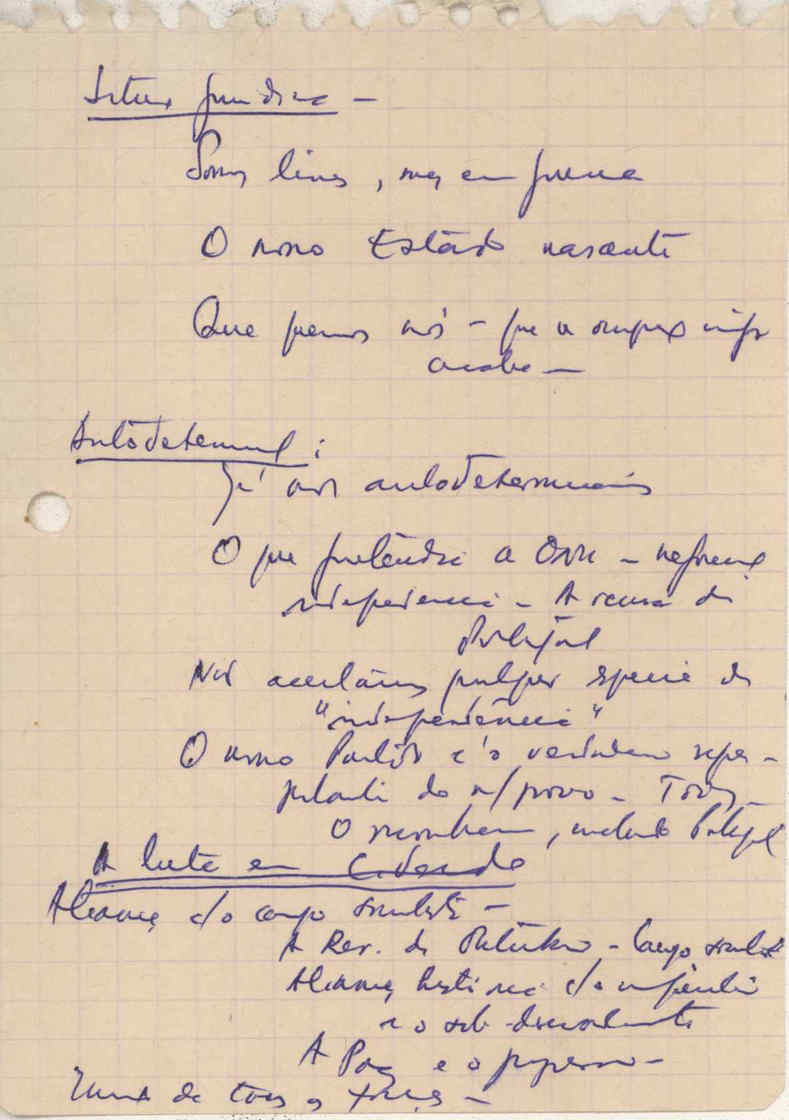 Situaç jurídica —
Somos livres, mas em guerra
O nosso Estado nascente
Que queremos nós — que a
acabe —
Autodeterminaç :
Já nos autodeterminámos
O que pretendia a ONU —
independência — A recusa de
Portugal
Nós aceitamos qualquer espécie de
"independência"
O nosso Partido é o verdadeiro repre-
sentante do n/povo — Todos
O reconhecem, incluindo Portugal
A luta em C. Verde
Aliança c/o campo socialista —
A Rev. de Outubro — Campo socialista
Aliança histórica
e o sub-desenvolvimento
A Paz e o progresso —
de todas as forças —